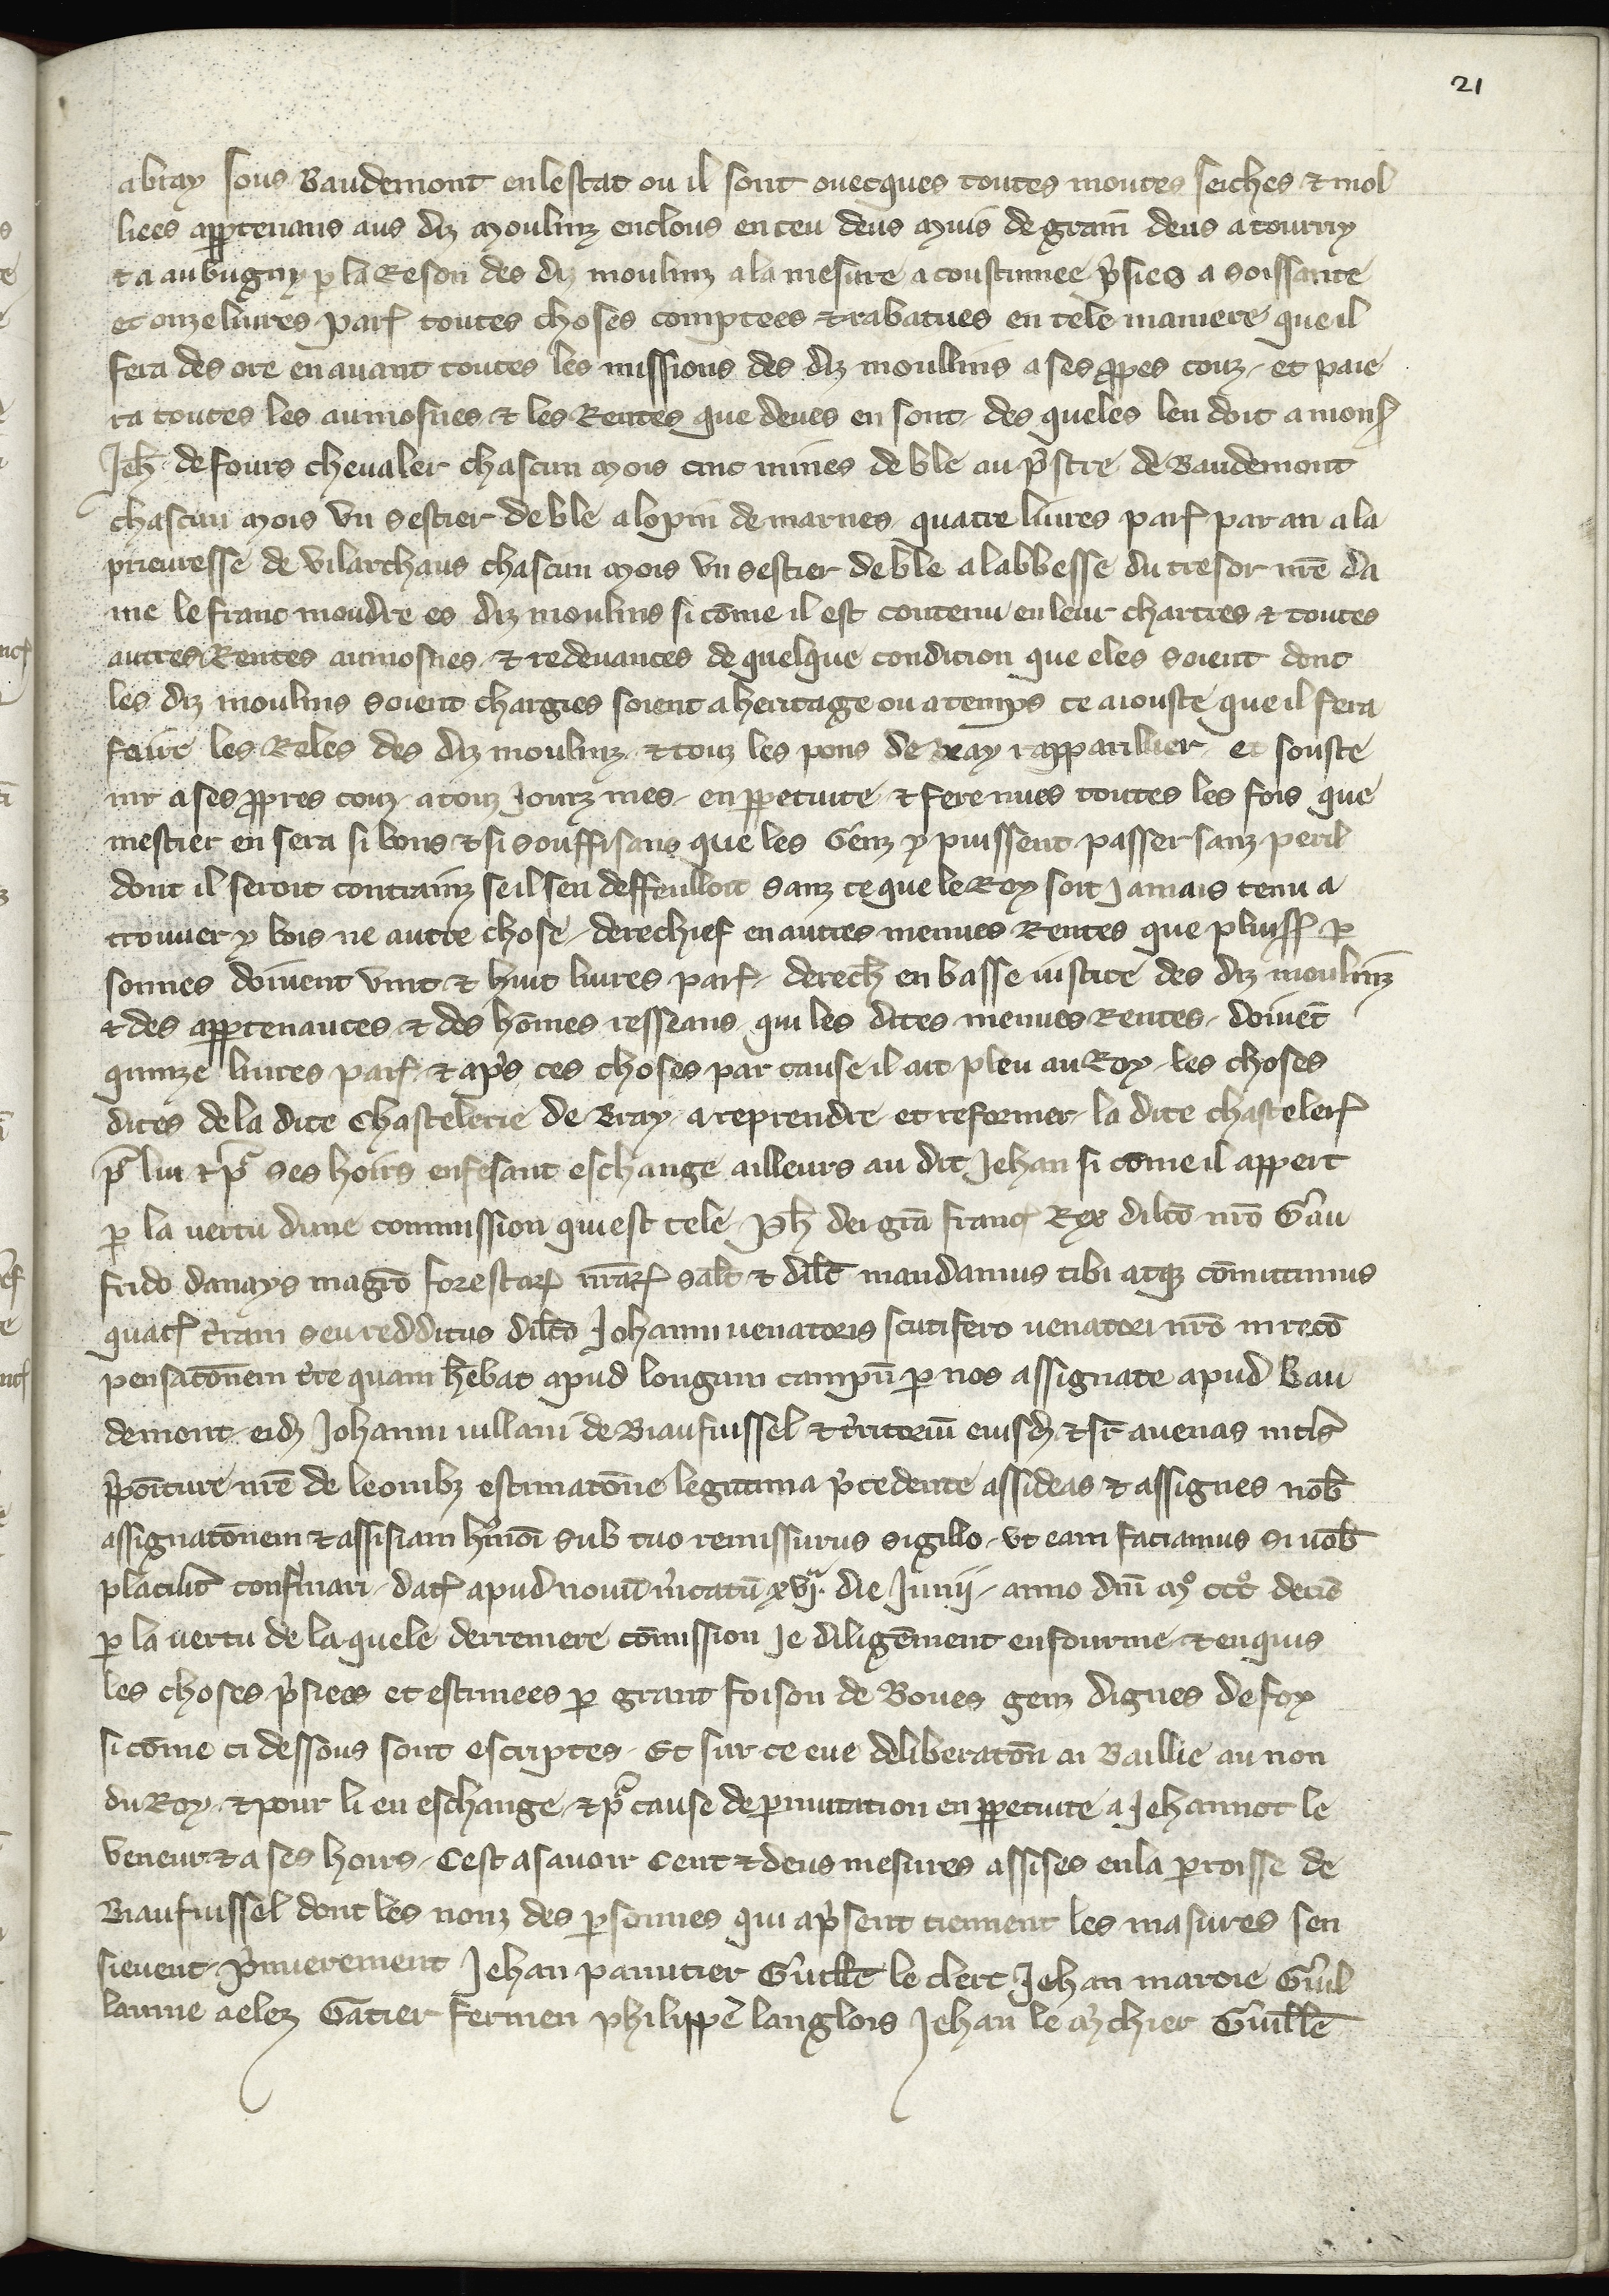 21
abray sous Baudemont en lestat ou il sont ovecques toutes moutes seiches & mol
liees appartenans aus diz moulinz enclous en ceu deus muis de grain deus a tourny
& a aubugny p la Reson des diz moulinz a la mesure acoustumee p'sies a soissante
et onze livres par͛ toutes choses comptees & rabatues en tele maniere que il
fera des ore en avant toutes les missions des diz moullins a ses ꝓpes couz et paie
ra toutes les aumosnes & les Rentes que deues en sont des queles len doit a mons͛
Jeh̄ de fours chevaler chascun mois cinc mines de ble au p'stre de Baudemont
chascun mois un sestier de ble a lopin de marnes quatre livres par͛ par an a la
prieuresse de vilarchaus chascun mois un sestier de ble a labbesse du tresor nr̄e da
me le franc moudre es diz moulins si cōme il est contenu en leur chartres & toutes
autres Rentes aumosnes & redevances de quelque condicion que eles soient dont
les diz moulins soient chargies soient a heritage ou a temps ce aiouste que il fera
faire les Reles des diz moulinz & touz les pons de Bray rapparillier et souste
nir a ses ꝓpres couz a touz jourz mes en ꝑpetuite & fere nues toutes les fois que
mestier en sera si bons & si souffisans que les Genz y puissent passer sanz peril
dont il seroit contrainz se il sen deffeulloit sanz ce que le Roy soit jamais tenu a
trouver y bois ne autre chose derechief en autres menues Rentes que plus͛ ꝑ
sonnes doivent vint & huit livres par͛ derech̄ en basse iustice des diz moulinz
& des appartenances & des hōmes resseans qui les dites menues Rentes doivēt
quinze livres par͛ & ap's ces choses par cause il ait pleu au Roy les choses
dites de la dite Chastelerie de Bray a reprendre et reformer la dite chasteler͛
pʳ lui & pʳ ses hoirs en fesant eschange ailleurs au dit Jehan si come il appert
ꝑ la vertu dune commission qui est tele Ph̄ dei gr̄a franc͛ Rex dilc̄o nr̄o Gau
frido danays magr̄o forestar͛ nr̄ar͛ salt̄ & dilt̄ mandamus tibi atqꝫ cōmittimus
quat͛ t'ram seu redditus dilc̄o Johanni venatoris scutifero venatori nr̄o in recō
pensatōnem t're quam hēbat apud longum campū ꝑ nos assignate apud Bau
demont eidꝫ Johanni villam de Biaufuissel & t'ritoriū eiusdꝫ & sr̄ avenas
p̄poiture nr̄e de leonibꝫ estimatōne legitima p'cedente assideas & assignes nob̄
assignatōnem & assisiam hmōi sub tuo remissurus sigillo ut eam faciamus si nob̄
placuit̄ confirmari dat͛ apud novū m'catū xvjª die Junii anno dn̄i mº cccº decīo
ꝑ la vertu de la quele derreniere cōmission je diligēment enfourme & enquis
les choses p'siees et estimees ꝑ grant foison de Bones genz dignes de foy
si cōme ci dessous sont escriptes Et sur ce eue deliberatōn ai Baillie au non
du Roy & pour li en eschange & pʳ cause de ꝑmutation en ꝑpetuite a Jehannot le
veneur & a ses hoirs Cest a savoir Cent & deus mesures assises en la ꝑroisse de
Biaufuissel dont les nonz des ꝑsonnes qui a p'sent tiennent les masures sen
sievent p'mierement Jehan panutier Guill̄e le clerc Jehan marcie Guil
laume aelez Gautier fermen philippe langlois Jehan le m'chier Guill̄e